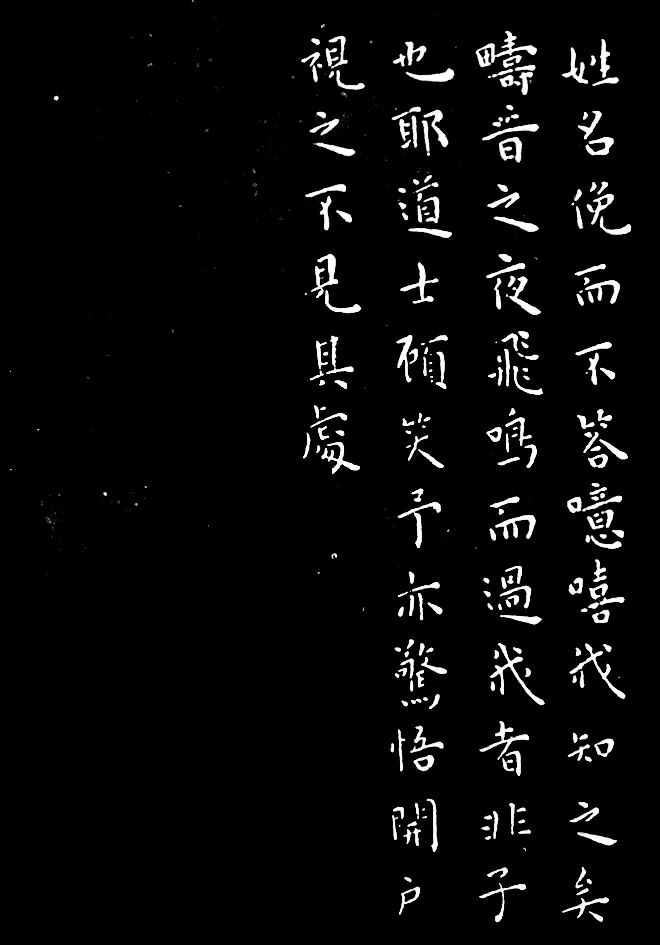 姓名俛而不答噫嘻我知之矣
疇昔之夜飛鳴而過我者非子
也耶道士顧笑予亦驚悟開户
視之不見其處